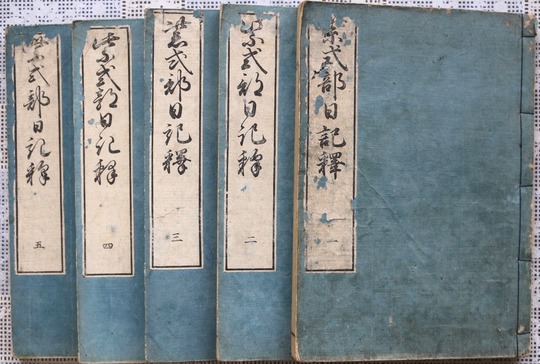 紫式部日記釋
一
紫式部日記釋
二
紫式部日記釋
三
紫式部日記釋
四
紫式部日記釋
五